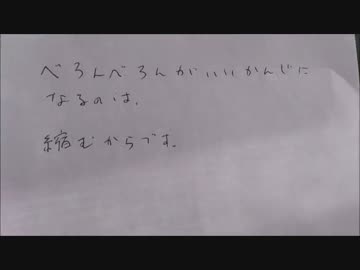 べろんべろんがいいかんじに
なるのは、
縮むからです。